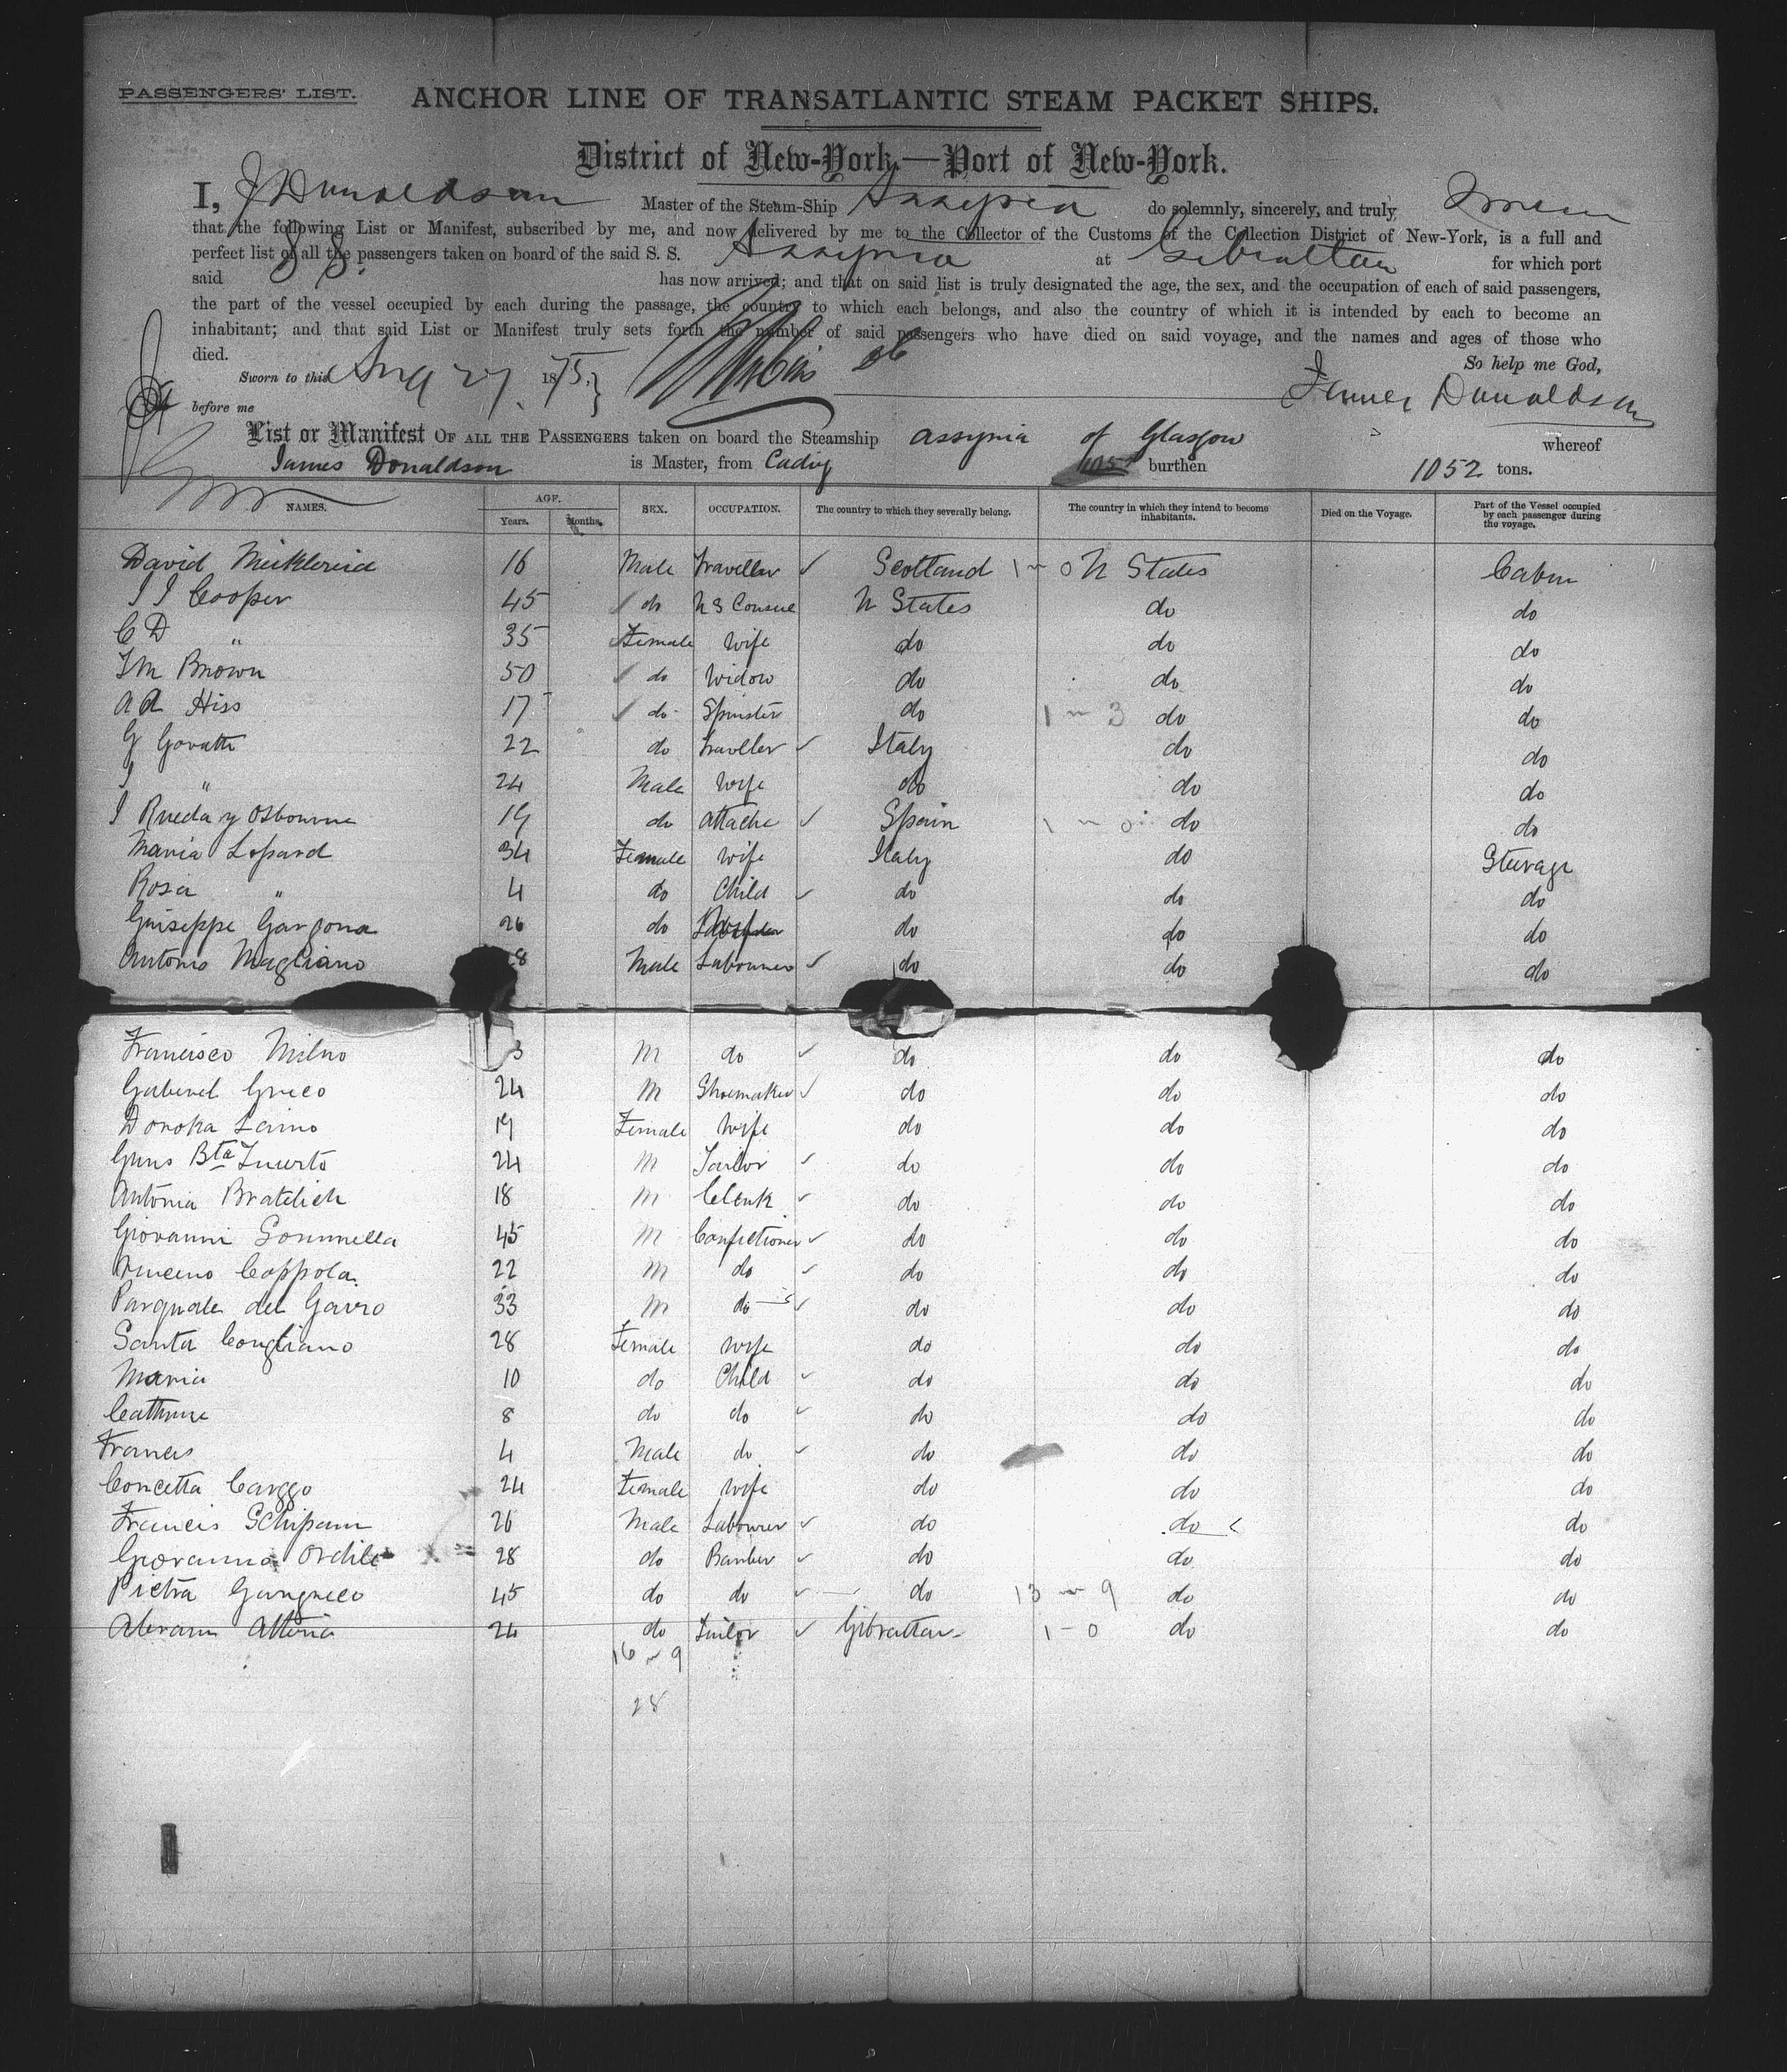 PASSENGERS' LIST.
ANCHOR LINE OF TRANSATLANTIC STEAM PACKET SHIPS.
District of New-York,—Port of New-York.
I, J Donaldson Master of the Steam-Ship Assyria do solemnly, sincerely, and truly Swear
that the following List or Manifest, subscribed by me, and now delivered by me to the Collector of the Customs of the Collection District of New-York, is a full and
perfect list of all the passengers taken on board of the said S. S. Assyria at Gibraltar for which port
said S S. has now arrived; and that on said list is truly designated the age, the sex, and the occupation of each of said passengers,
the part of the vessel occupied by each during the passage, the country to which each belongs, and also the country of which it is intended by each to become an
inhabitant; and that said List or Manifest truly sets forth the number of said passengers who have died on said voyage, and the names and ages of those who
died. So help me God,
Sworn to this Aug 27 1875. James Donaldson
before me
List or Manifest OF ALL THE PASSENGERS taken on board the Steamship Assyria of Glasgow whereof
James Donaldson is Master, from Cadiz burthen 1052 tons.
NAMES. AGE. Years. Months. SEX. OCCUPATION. The country to which they severally belong. The country in which they intend to become inhabitants. Died on the Voyage. Part of the Vessel occupied by each passenger during the voyage.
David 16 Male Traveller Scotland 1 ~ 0 U States Cabin
J J Cooper 45 do U S Consul U States do do
C D " 35 Female Wife do do do
J M Brown 50 do Widow do do do
A A Hiss 17 do Spinster do 1 ~ 3 do do
G Govatti 22 do Traveller Italy do do
J " 24 Male Wife do do do
J Rueda y Osbourne 19 do Attache Spain 1 ~ 0 do do
Maria Lopard 34 Female Wife Italy do Sterage
Rosa " 4 do Child do do do
Guiseppe Gargona 26 do do do do
Antonio Magliano 8 Male Labourer do do do
Francisco Milno 3 M do do do do
Gabriel Greco 24 M Shoemaker do do do
Doroka Laino 19 Female Wife do do do
Bta 24 M Tailor do do do
Antonia Bratelich 18 M Clerk do do do
Giovanni Sommella 45 M Confectioner do do do
Coppola 22 M do do do do
Parquale del Gavro 33 M do do do do
Santa Congliano 28 Female Wife do do do
Maria 10 do Child do do do
Cathrine 8 do do do do do
Francis 4 Male do do do do
Concetta Carggo 24 Female Wife do do do
Francis Schipani 26 Male Labourer do do do
Giovanna Ordile 28 do Barber do do do
Pietra Gangreco 45 do do do 13 ~ 9 do do
Abram Attina 24 do Tailor Gibraltar 1 - 0 do do
16 ~ 9
28